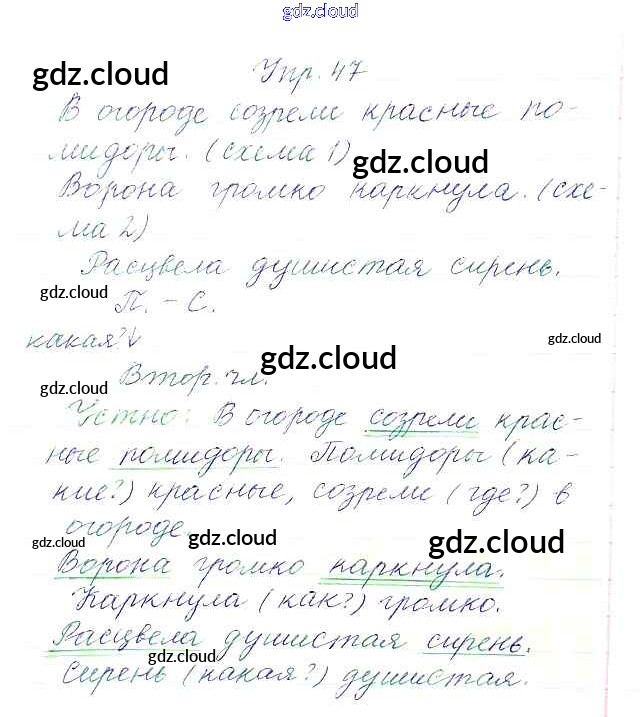 gdz.cloud
gdz.cloud
Упр. 47
В огороде созрели красные по-
мидоры. (схема 1)
gdz.cloud
Ворона громко каркнула. (схе-
ма 2)
Расцвела душистая сирень.
gdz.cloud
П. - С.
какая?↓
gdz.cloud
gdz.cloud
Втор. чл.
gdz.cloud
Устно: В огороде созрели крас-
ные помидоры. Помидоры (ка-
кие?) красные, созрели (где?) в
огороде.
gdz.cloud
gdz.cloud
gdz.cloud
Ворона громко каркнула.
Каркнула (как?) громко.
Расцвела душистая сирень.
gdz.cloud
Сирень (какая?) душистая.